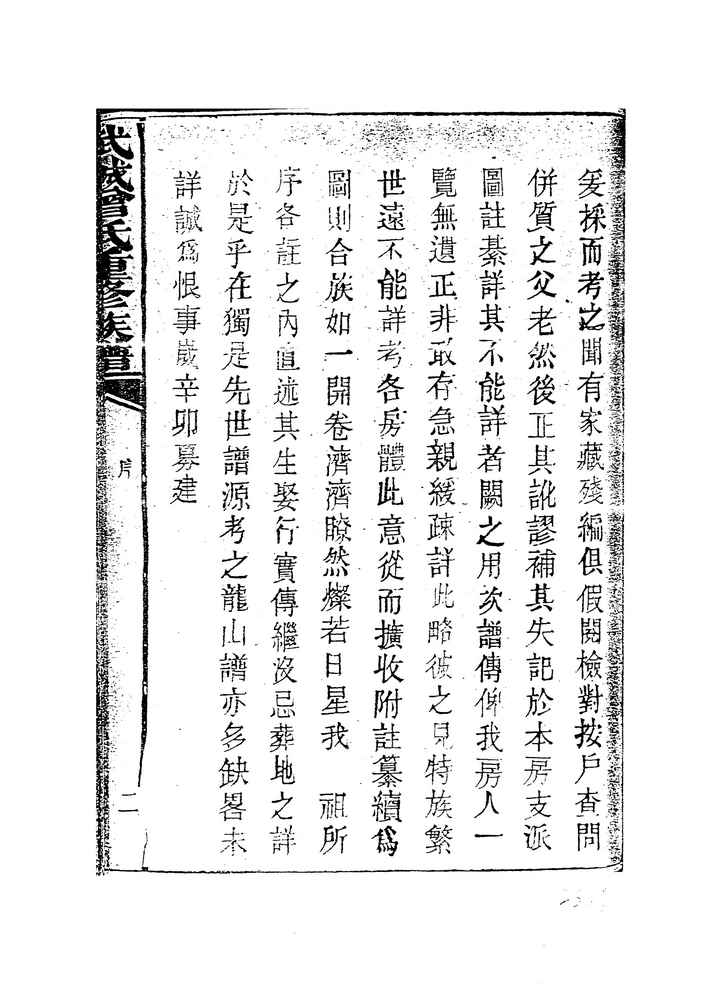 爰採而考之聞有家藏殘編俱假閱檢對按戶查問
併質之父老然後正其訛謬補其失記於本房支派
圖註綦詳其不能詳者闕之用次譜傳俾我房人一
覽無遺正非敢存急親緩疎詳此略彼之見特族繁
世遠不能詳考各房體此意從而擴收附註纂續為
圖則合族如一開卷濟濟瞭然燦若日星我　祖所
序各註之內直述其生娶行實傳繼沒忌葬地之詳
於是乎在獨是先世譜源考之龍山譜亦多缺畧未
詳誠為恨事歲辛卯募建
武城曾氏重修族譜
序
二